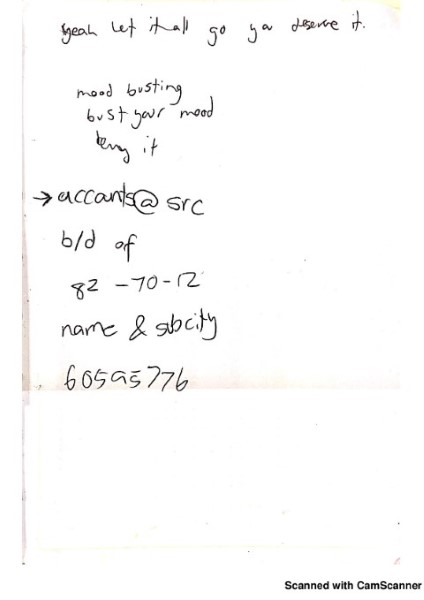 yeah let it all go you deserve it.
mood busting
bust your mood
it
→ accounts@ src
b/d of
82-70-12
name & sbcity
60595776
Scanned with CamScanner